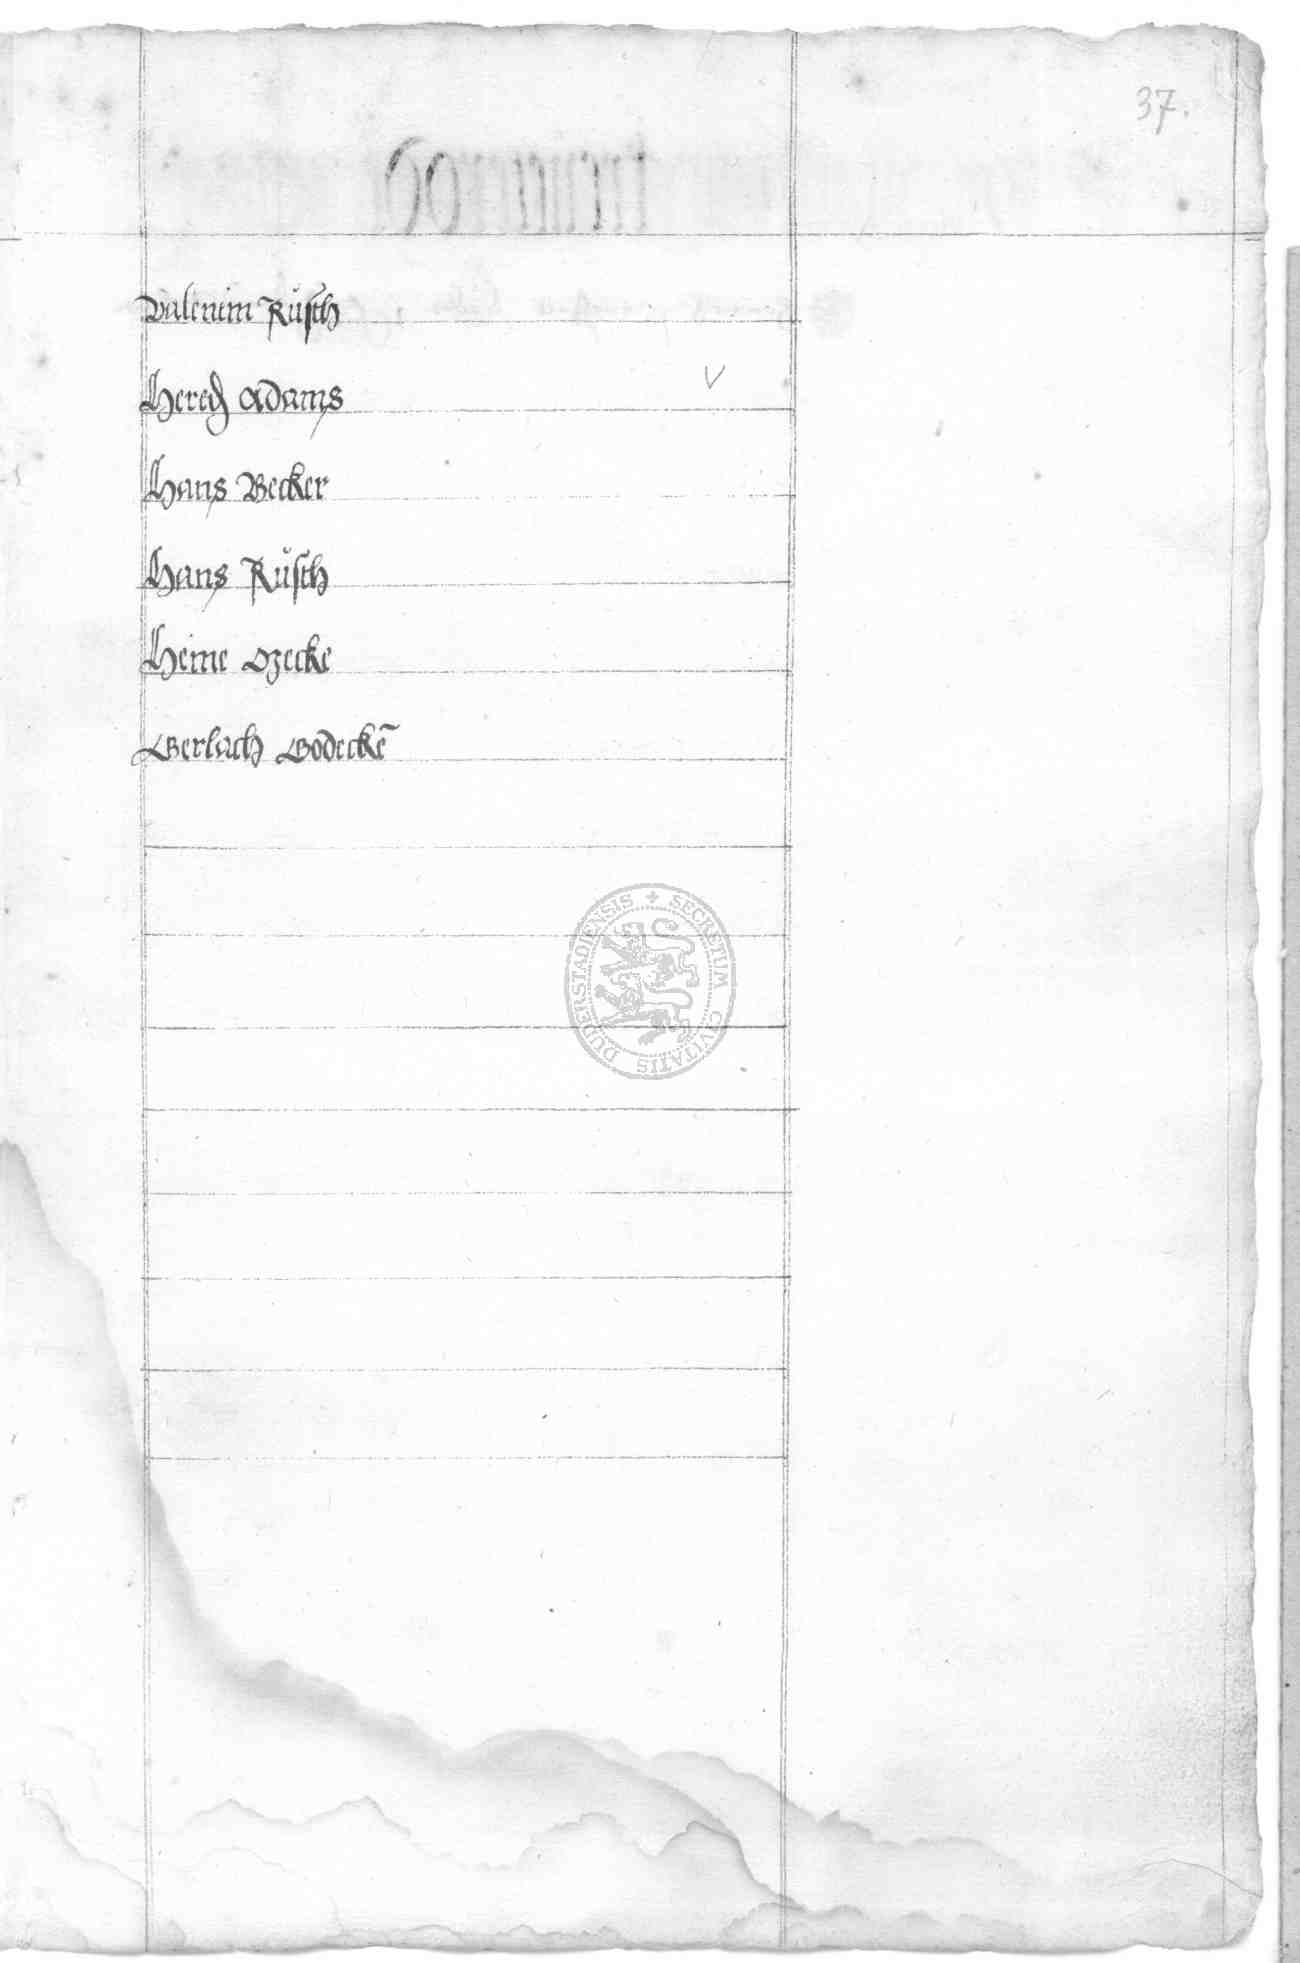 37.
Valentin Rusch
Hered Adams
v
Hans Becker
Hans Rusch
Heine Ozecke
Gerlach Godeckẽ
SECRETUM CIVITATIS DUDERSTADIENSIS